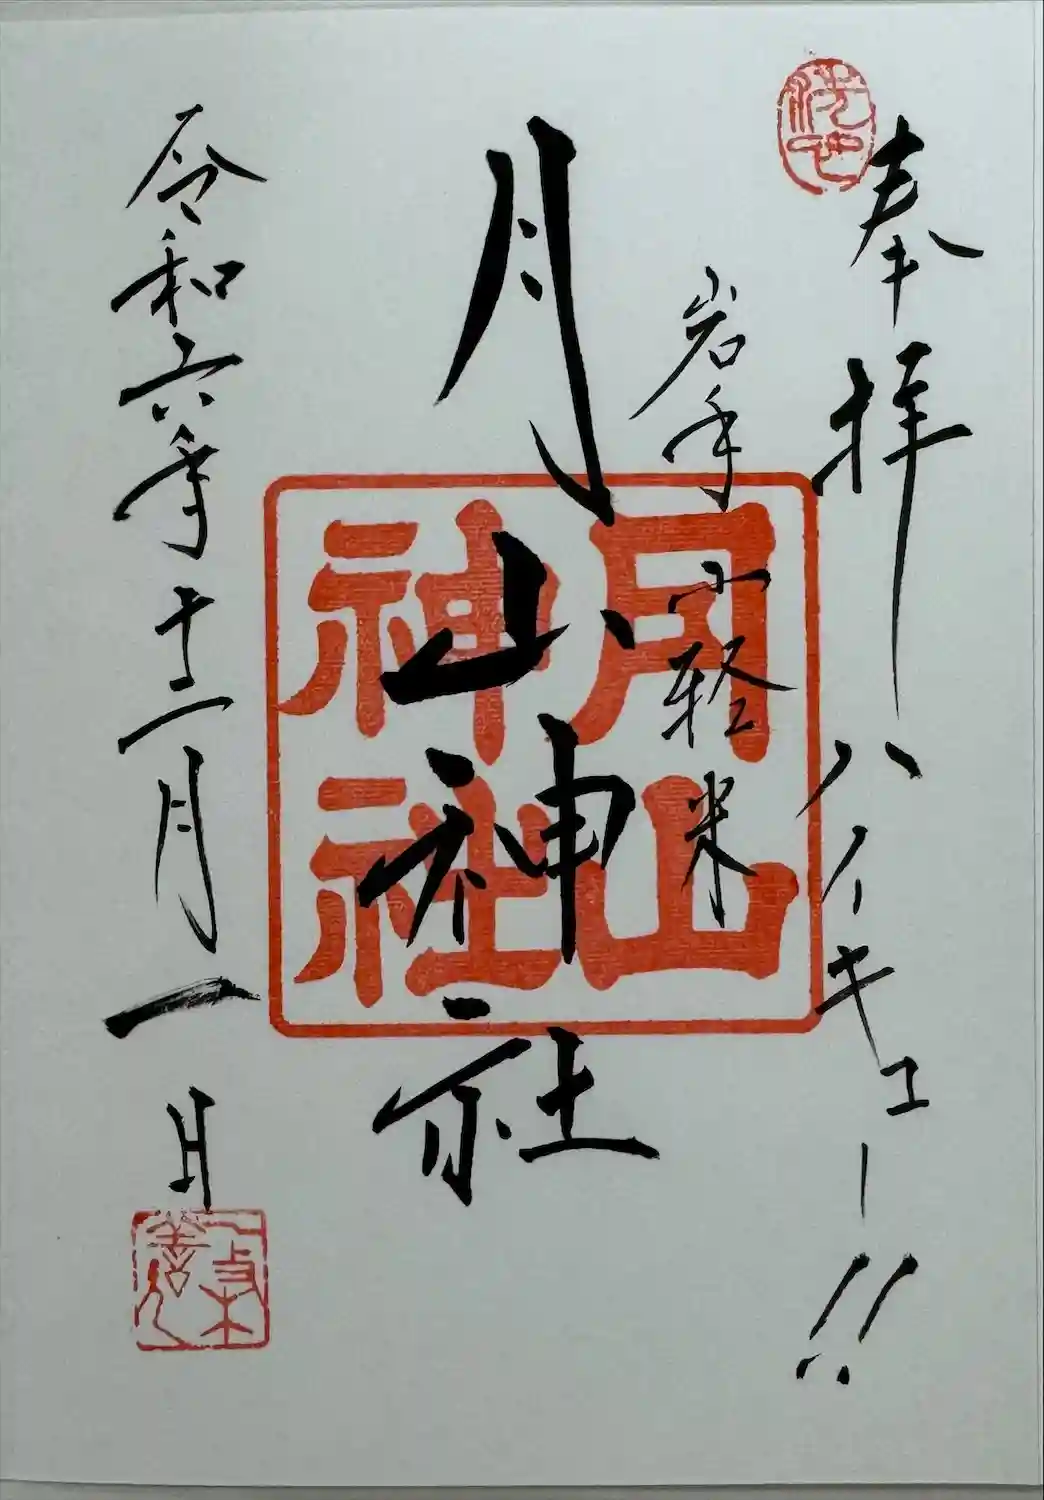 洗心
奉拝 ハイキュー!!
岩手 軽米
月山神社
月山
神社
令和六年十二月一日